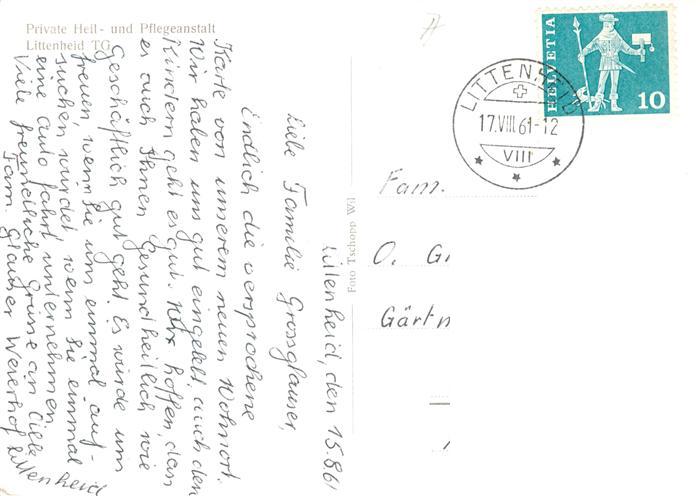 Private Heil- und Pflegeanstalt
Littenheid TG
Littenheid, den 15.8.61
Liebe Familie Grossglauser,
Endlich die versprochene
Karte von unserem neuen Wohnort.
Wir haben uns gut eingelebt, auch den
Kindern geht es gut. Wir hoffen, dass
es auch Ihnen gesundheitlich wie
Geschäftlich gut geht. Es würde uns
freuen, wenn Sie uns einmal auf-
suchen würdet, wenn Sie einmal
eine Autofahrt unternehmen.
Viele freundliche Grüsse an Alle
Fam. Glauser Weierhof Littenheid
Foto Tschopp Wil
HELVETIA
10
LITTENHEID
17.VIII.61-12
VIII
Fam.
O. G
Gärtn